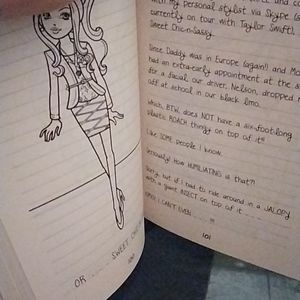 with my personal stylist via Skype (s
currently on tour with Taylor Swift).
Sweet Chic-n-Sassy.
Since Daddy was in Europe (again!) and Mo
had an extra-early appointment at the s
for a facial, our driver, Nelson, dropped
off at school in our black limo.
Which, BTW, does NOT have a six-foot-long
plastic ROACH thingy on top of it!!
Like SOME people I know.
Seriously! How HUMILIATING is that?!
Sorry, but if I had to ride around in a JALOPY
with a giant INSECT on top of it
I CAN'T EVEN
101
OR SWEET CHIC
100